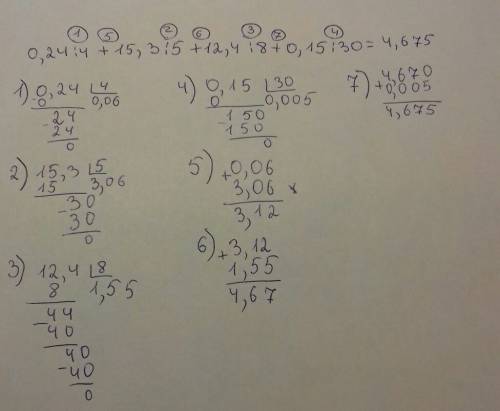 ① ⑤ ② ⑥ ③ ⑦ ④
0,24:4 + 15,3:5 + 12,4:8 + 0,15:30 = 4,675
1) 0,24 | 4
-0 0,06
24
-24
0
2) 15,3 | 5
15 3,06
-30
30
0
3) 12,4 | 8
8 1,55
44
-40
40
-40
0
4) 0,15 | 30
0 0,005
150
-150
0
5) +0,06
3,06
3,12
6) +3,12
1,55
4,67
7) +4,670
0,005
4,675